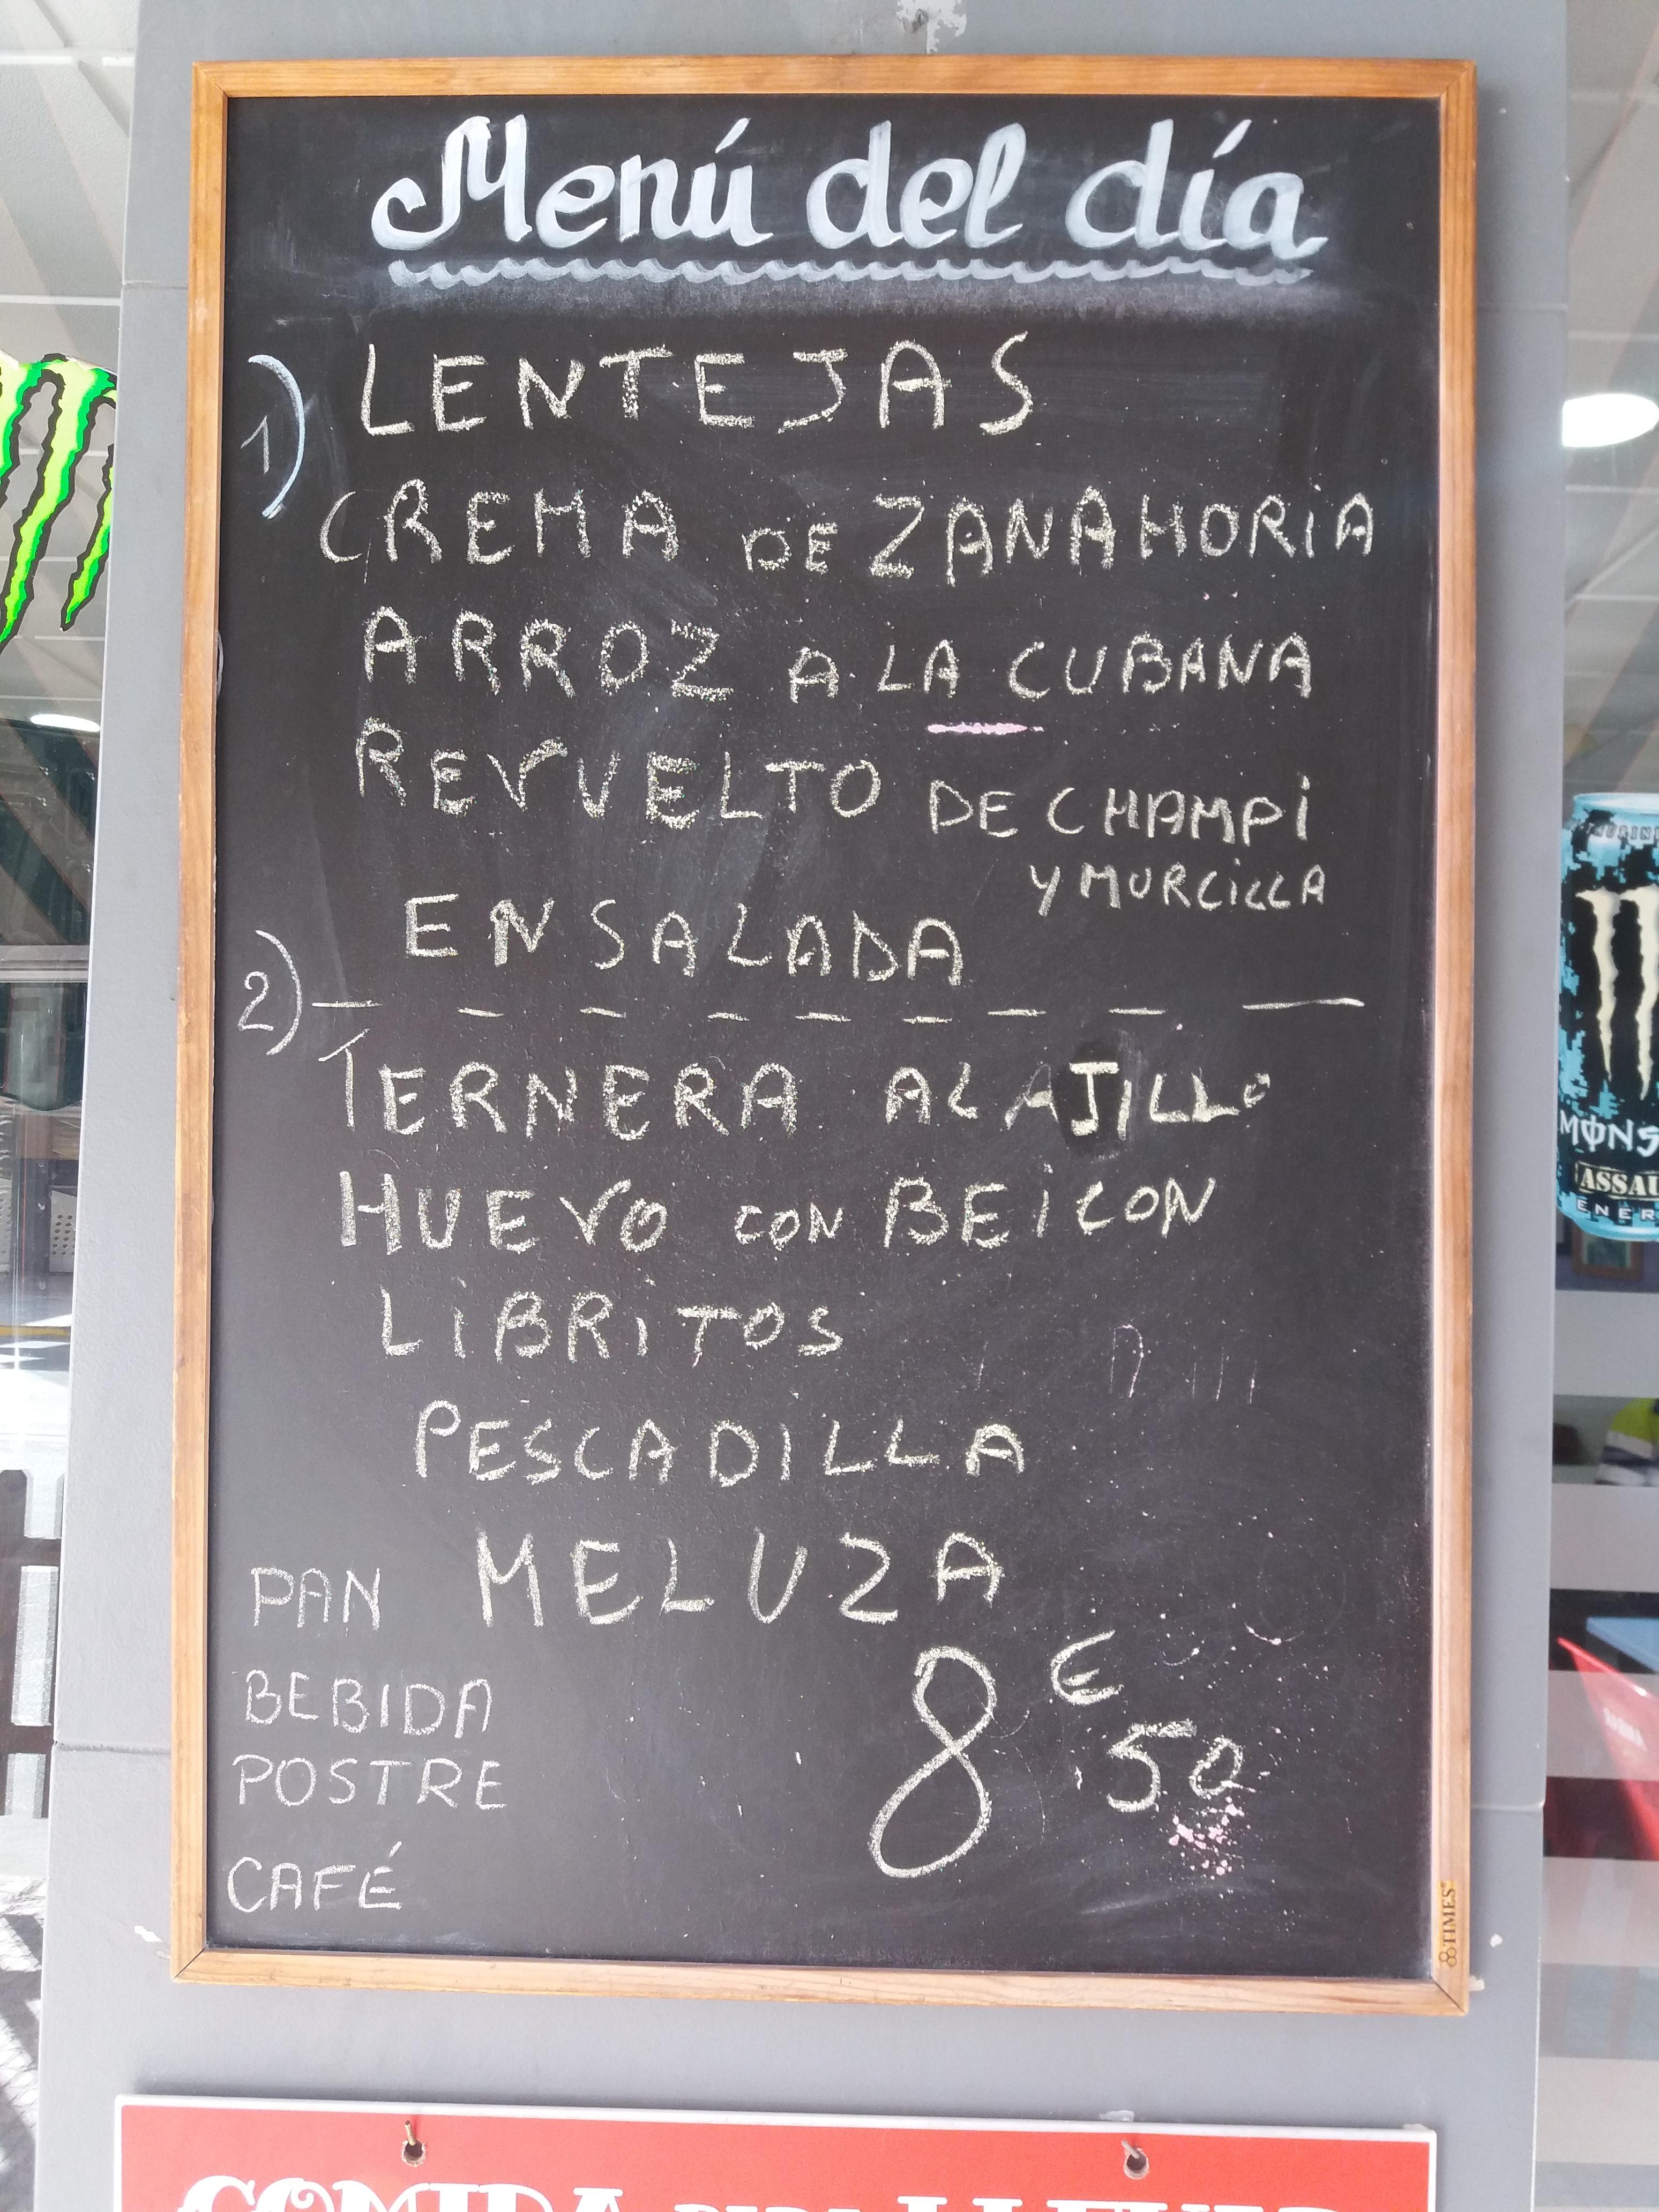 Menú del día
1) LENTEJAS
CREMA DE ZANAHORIA
ARROZ A LA CUBANA
REVVELTO DE CHAMPI
Y MURCILLA
ENSALADA
2)
TERNERA AL AJILLO
HUEVO CON BEICON
LIBRITOS
PESCADILLA
MELUZA
PAN
BEBIDA
POSTRE
CAFÉ
8€50
TIMES
COMIDA PARA LLEVAR
ASSAU
ENER